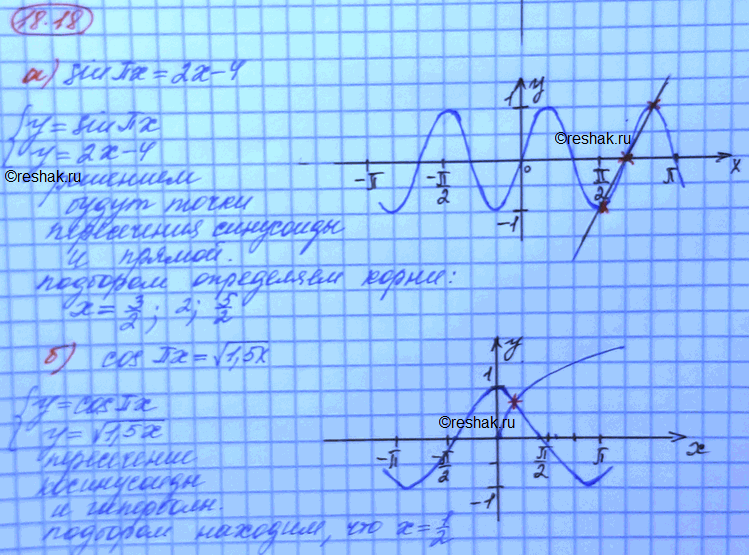 18.18
а) sin πx = 2x-4
{ y = sin πx
y = 2x-4
решением
будут точки
пересечения синусоиды
и прямой.
подбором определяем корни:
x = 3/2 ; 2; 5/2
1 y
-π -π/2 0 π/2 π x
-1
©reshak.ru
©reshak.ru
б) cos πx = √1,5x
{ y = cos πx
y = √1,5x
пересечение
косинусоиды
и гиперболы.
подбором находим, что x = 1/2
1 y
-π -π/2 π/2 π x
-1
©reshak.ru